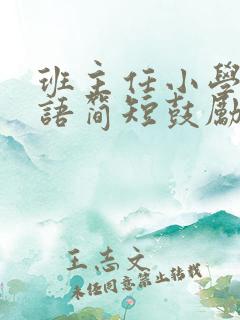 班主任小學
語簡短鼓勵
王志文
未經同意禁止轉載